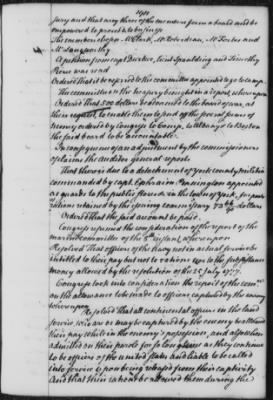 jury and that any three of the members form a board and be
empowered to proceed to business
The members chosen Mr Clark, Mr Boudinot, Mr Forbes and
Mr Langworthy
A petition from capt Brewer, lieut Spaulding and Timothy
Rowe was read
Ordered that it be referred to the committee appointed to go to camp
The committee on the treasury brought in a report, whereupon
Ordered that 500 dollars be advanced to the board of war, at
their request, to enable them to send the several sums of
money ordered by Congress to Camp, Williamsburg & to Boston
the said board to be accountable
In consequence of an adjustment by the commissioners
of claims the auditor general reports
That there is due to a detachment of York county militia
commanded by capt Ephraim Pennington appointed
as guards to the public stores in the town of York, for part
rations retained by the issuing commissary 73 dollars
Ordered that the said account be paid.
Congress resumed the consideration of the report of the
marine committee of the whereupon
Resolved That officers of the Navy not in actual service be
intitled to their pay but not to rations nor to the subsistence
money allowed by the resolution of the 25 July 1777.
Congress took into consideration the report of the comee
on the allowance to be made to officers captured by the enemy
whereupon
Resolved That all continental officers in the land
service, who are or may be captured by the enemy be allowed
their pay while in the enemy's possession, and also when
admitted on their parole for so long as they continue
to be officers of the united states and liable to be called
into service upon being released from their captivity
And that their rations be allowed them during the